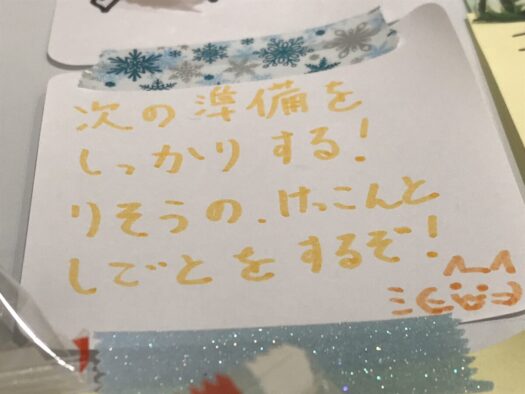 次の準備を
しっかりする!
りそうの.けっこんと
しごとをするぞ!